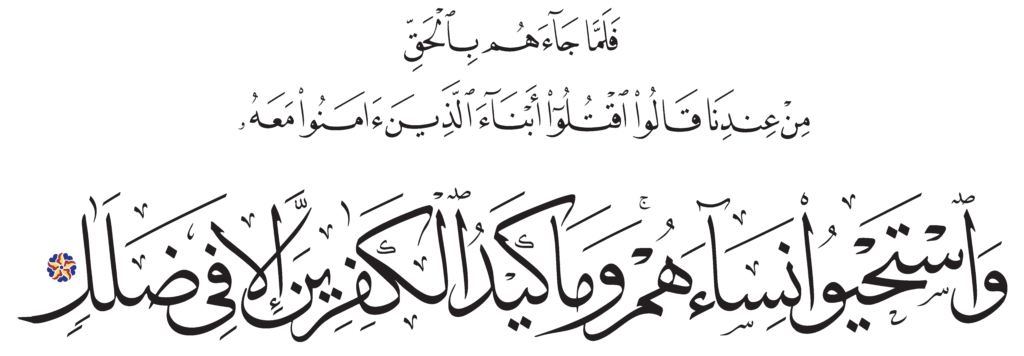 فَلَمَّا جَآءَهُم بِٱلْحَقِّ
مِنْ عِندِنَا قَالُوا۟ ٱقْتُلُوٓا۟ أَبْنَآءَ ٱلَّذِينَ ءَامَنُوا۟ مَعَهُۥ
وَٱسْتَحْيُوا۟ نِسَآءَهُمْ ۚ وَمَا كَيْدُ ٱلْكَـٰفِرِينَ إِلَّا فِى ضَلَـٰلٍ